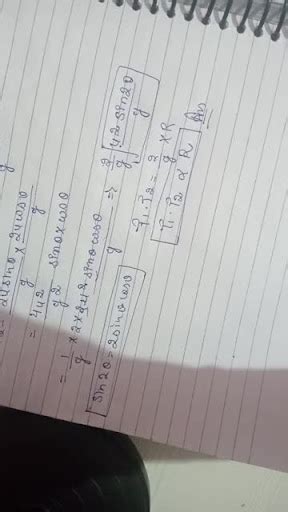 2u sinθ/g × 2u cosθ/g
= 4u2/g2 sinθ × cosθ
= 1/g × 2 × 2u2 sinθ cosθ/g ⇒ 2/g [u2 sin2θ/g]
sin2θ = 2 sinθ cosθ
T1.T2 = 2/g × R
T1.T2 ∝ R Ans